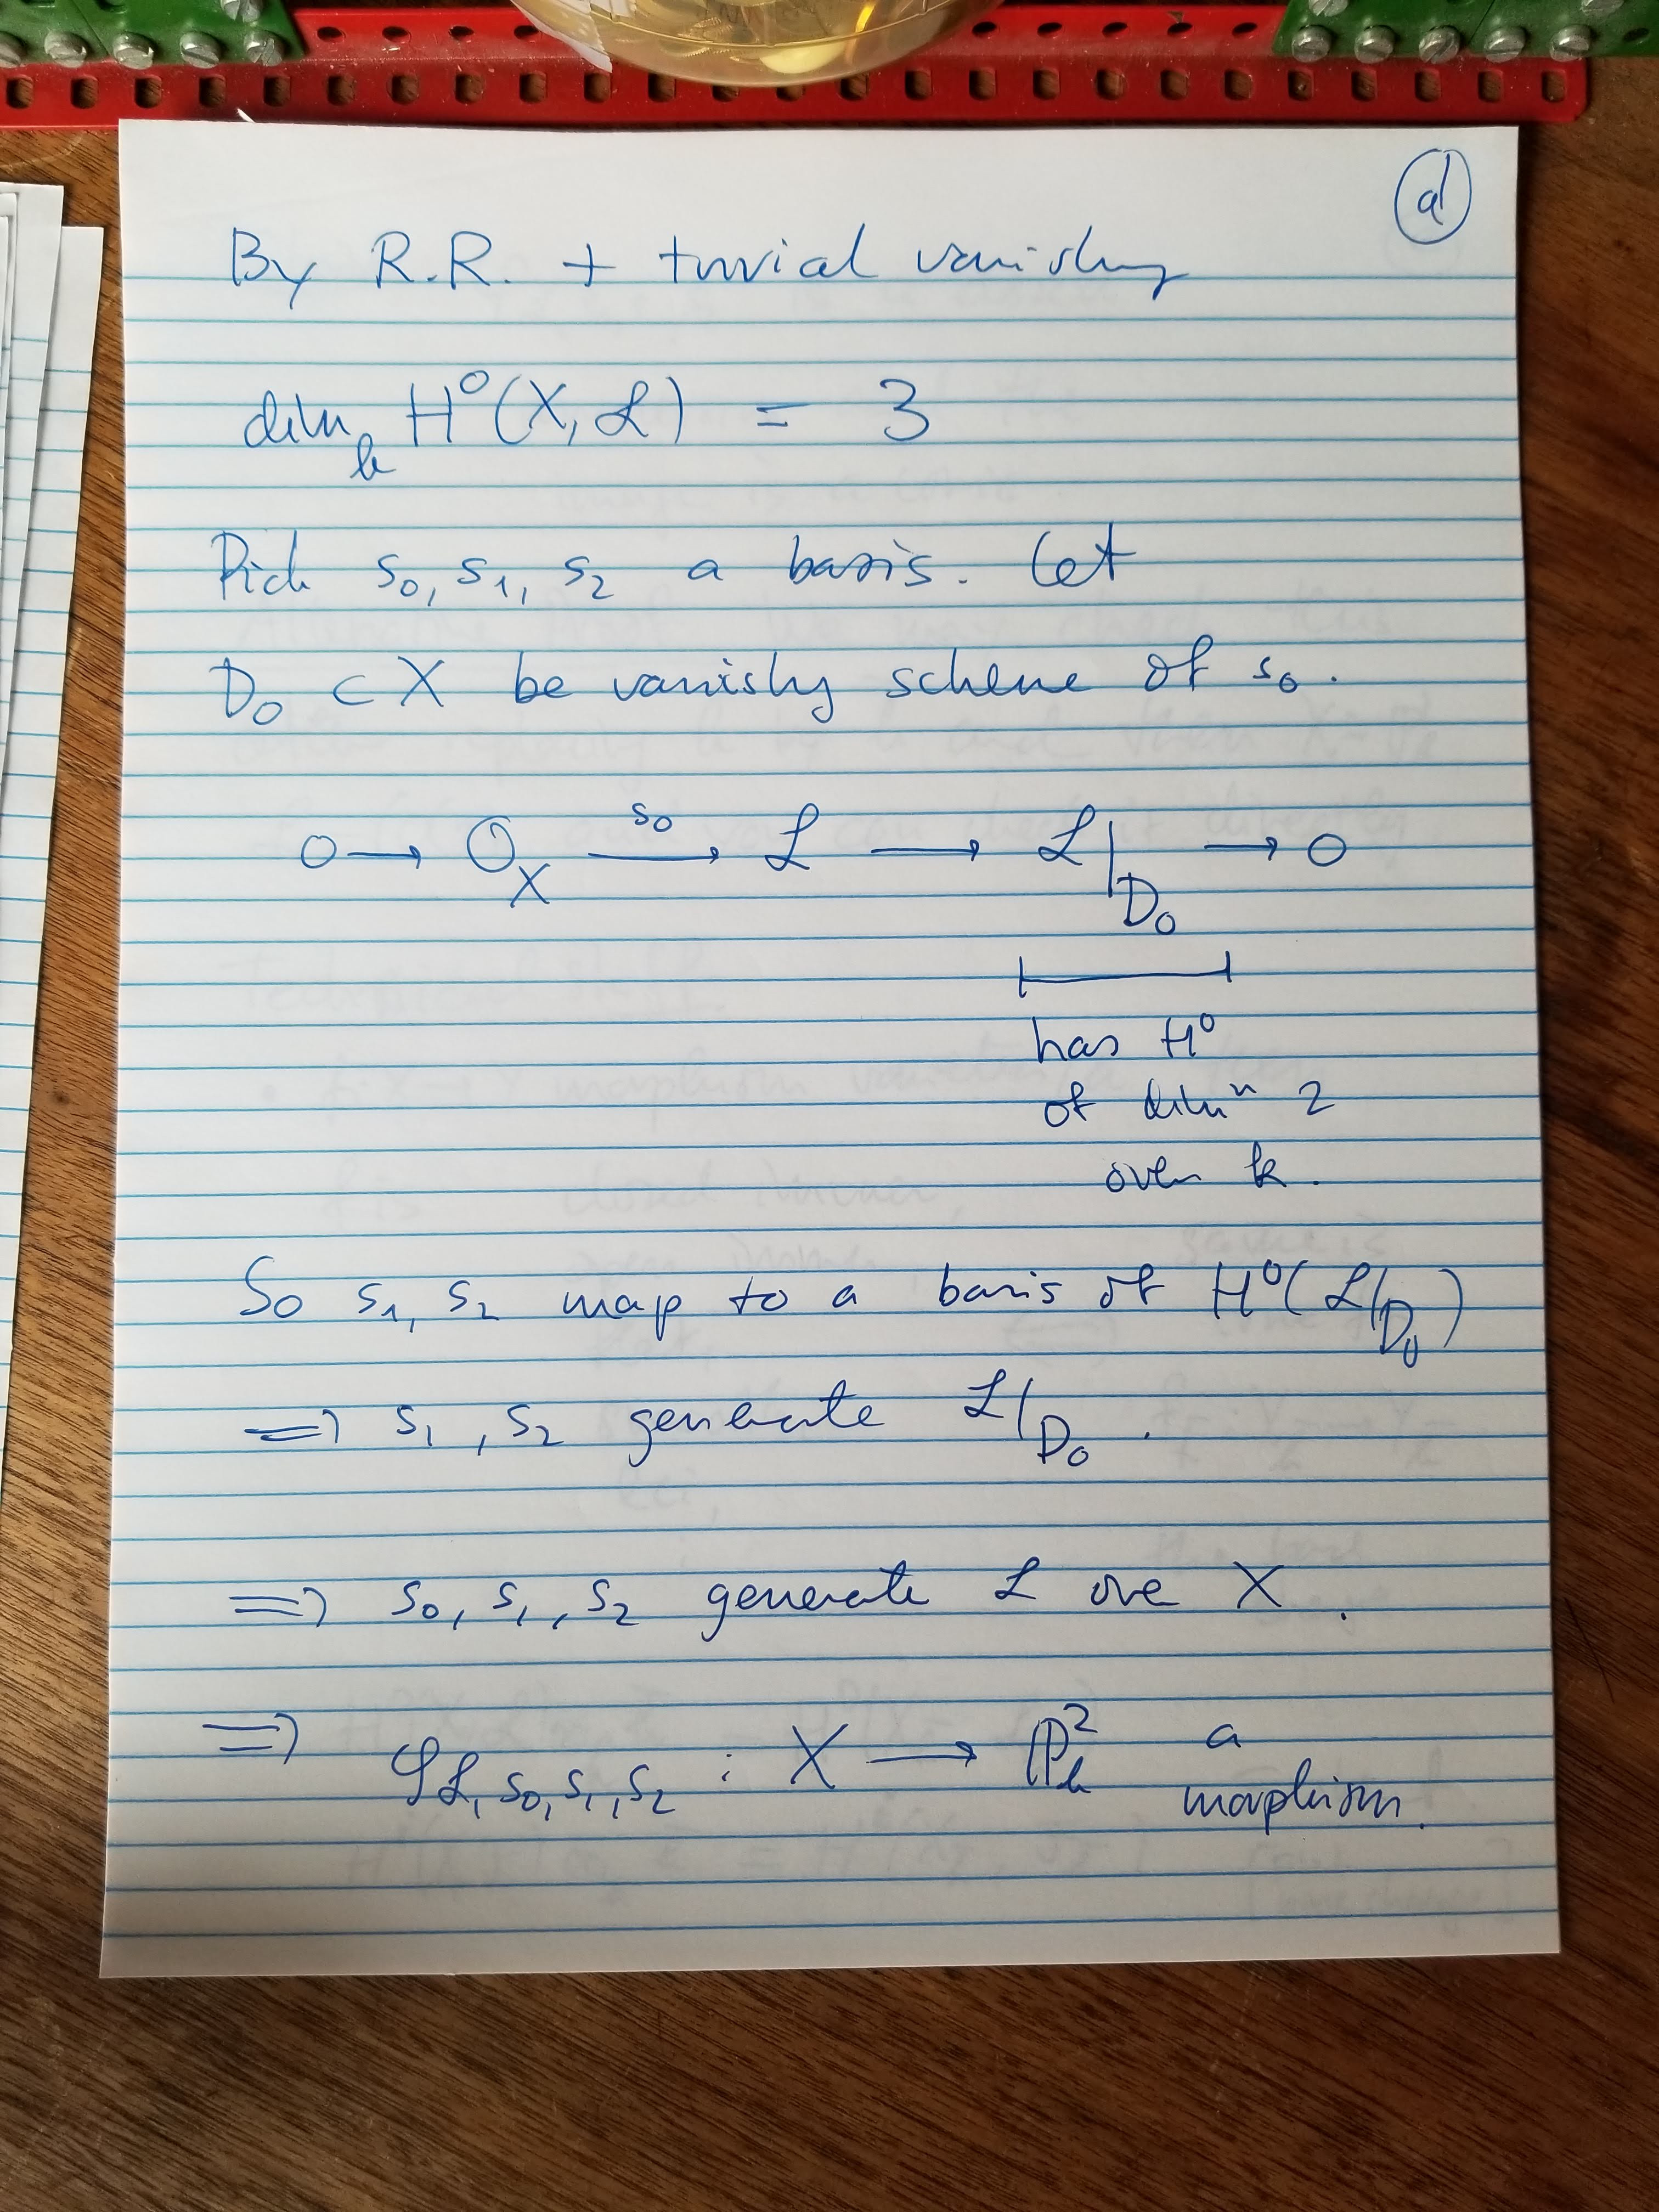 ⓓ
By R.R. + trivial vanishing
dim_k H⁰(X, ℒ) = 3
Pick s₀, s₁, s₂ a basis. Let
D₀ ⊂ X be vanishing scheme of s₀.
0 → O_X —s₀→ ℒ → ℒ|_D₀ → 0
has H⁰
of dimⁿ 2
over k.
So s₁, s₂ map to a basis of H⁰(ℒ|_D₀)
⟹ s₁, s₂ generate ℒ|_D₀.
⟹ s₀, s₁, s₂ generate ℒ ove X.
⟹ φ_ℒ, s₀, s₁, s₂ : X → ℙ²_k a
morphism.